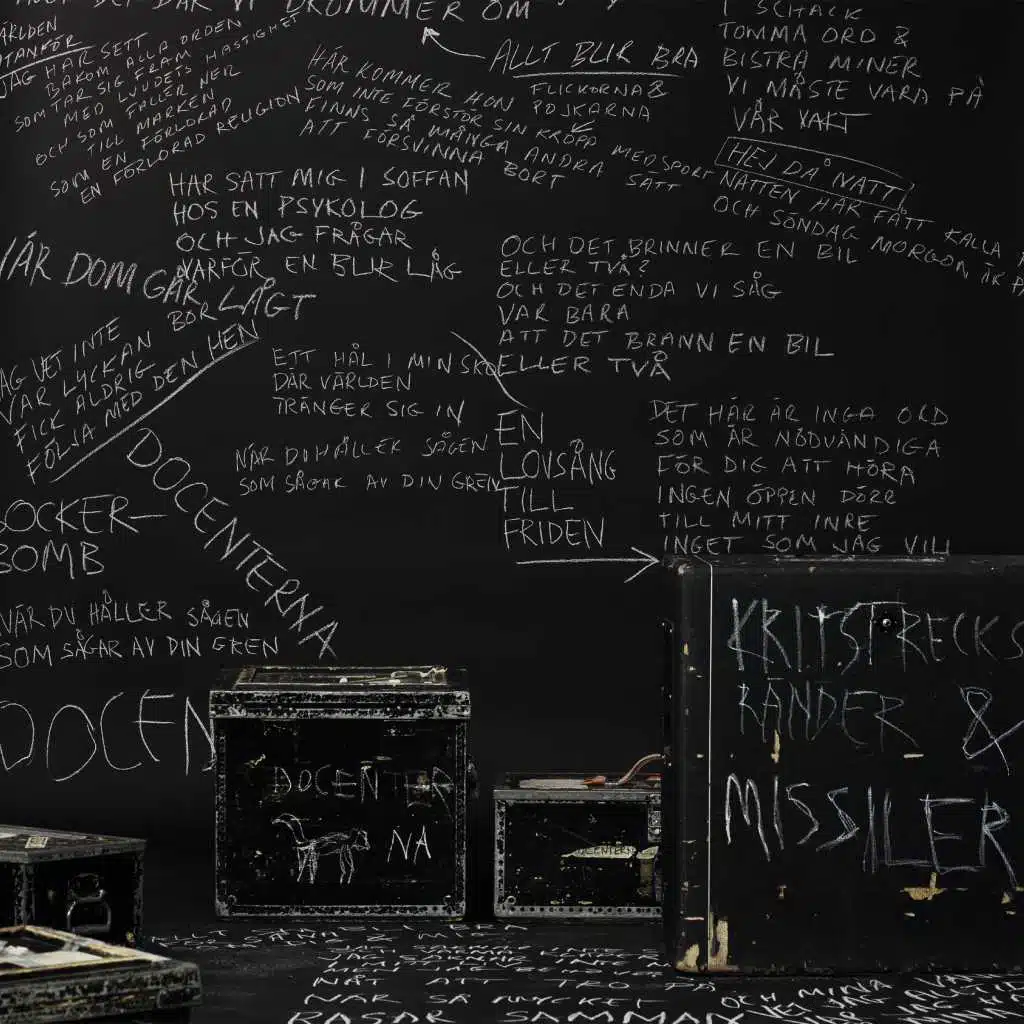 DET DÄR VI DRÖMMER OM
VÄRLDEN
UTANFÖR
JAG HAR SETT
BAKOM ALLA ORDEN
SOM TAR SIG FRAM
MED LJUDETS HASTIGHET
OCH SOM FALLER NER
TILL MARKEN
SOM EN FÖRLORAD
EN FÖRLORAD RELIGION
ALLT BLIR BRA
FLICKORNA &
POJKARNA
HÄR KOMMER HON
SOM INTE FÖRSTÖR SIN KROPP MED SPORT
FINNS SÅ MÅNGA ANDRA SÄTT
ATT FÖRSVINNA BORT
I SCHACK
TOMMA ORD &
BISTRA MINER
VI MÅSTE VARA PÅ
VÅR VAKT
HEJ DÅ NATT
NATTEN HAR FÅTT KALLA
OCH SÖNDAG MORGON ÄR PÅ
HAR SATT MIG I SOFFAN
HOS EN PSYKOLOG
OCH JAG FRÅGAR
VARFÖR EN BLIR LÅG
NÄR DOM GÅR LÅGT
OCH DET BRINNER EN BIL
ELLER TVÅ?
OCH DET ENDA VI SÅG
VAR BARA
ATT DET BRANN EN BIL
ELLER TVÅ
JAG VET INTE
VAR LYCKAN BOR
FICK ALDRIG
FÖLJA MED DEN HEM
ETT HÅL I MIN SKO
DÄR VÄRLDEN
TRÄNGER SIG IN
NÄR DU HÅLLER SÅGEN
SOM SÅGAR AV DIN GREN
EN
LOVSÅNG
TILL
FRIDEN
DET HÄR ÄR INGA ORD
SOM ÄR NÖDVÄNDIGA
FÖR DIG ATT HÖRA
INGEN ÖPPEN DÖRR
TILL MITT INRE
INGET SOM JAG VILL
DOCENTERNA
SOCKER-
BOMB
NÄR DU HÅLLER SÅGEN
SOM SÅGAR AV DIN GREN
DOCEN
DOCENTER
NA
KRITSTRECKS
RÄNDER &
MISSILER
JAG SAKNAR INTE
MEN JAG BEHÖVER
NÅT ATT TRO PÅ
NÄR SÅ MYCKET
RASAR SAMMAN
OCH MINA
VET JAG